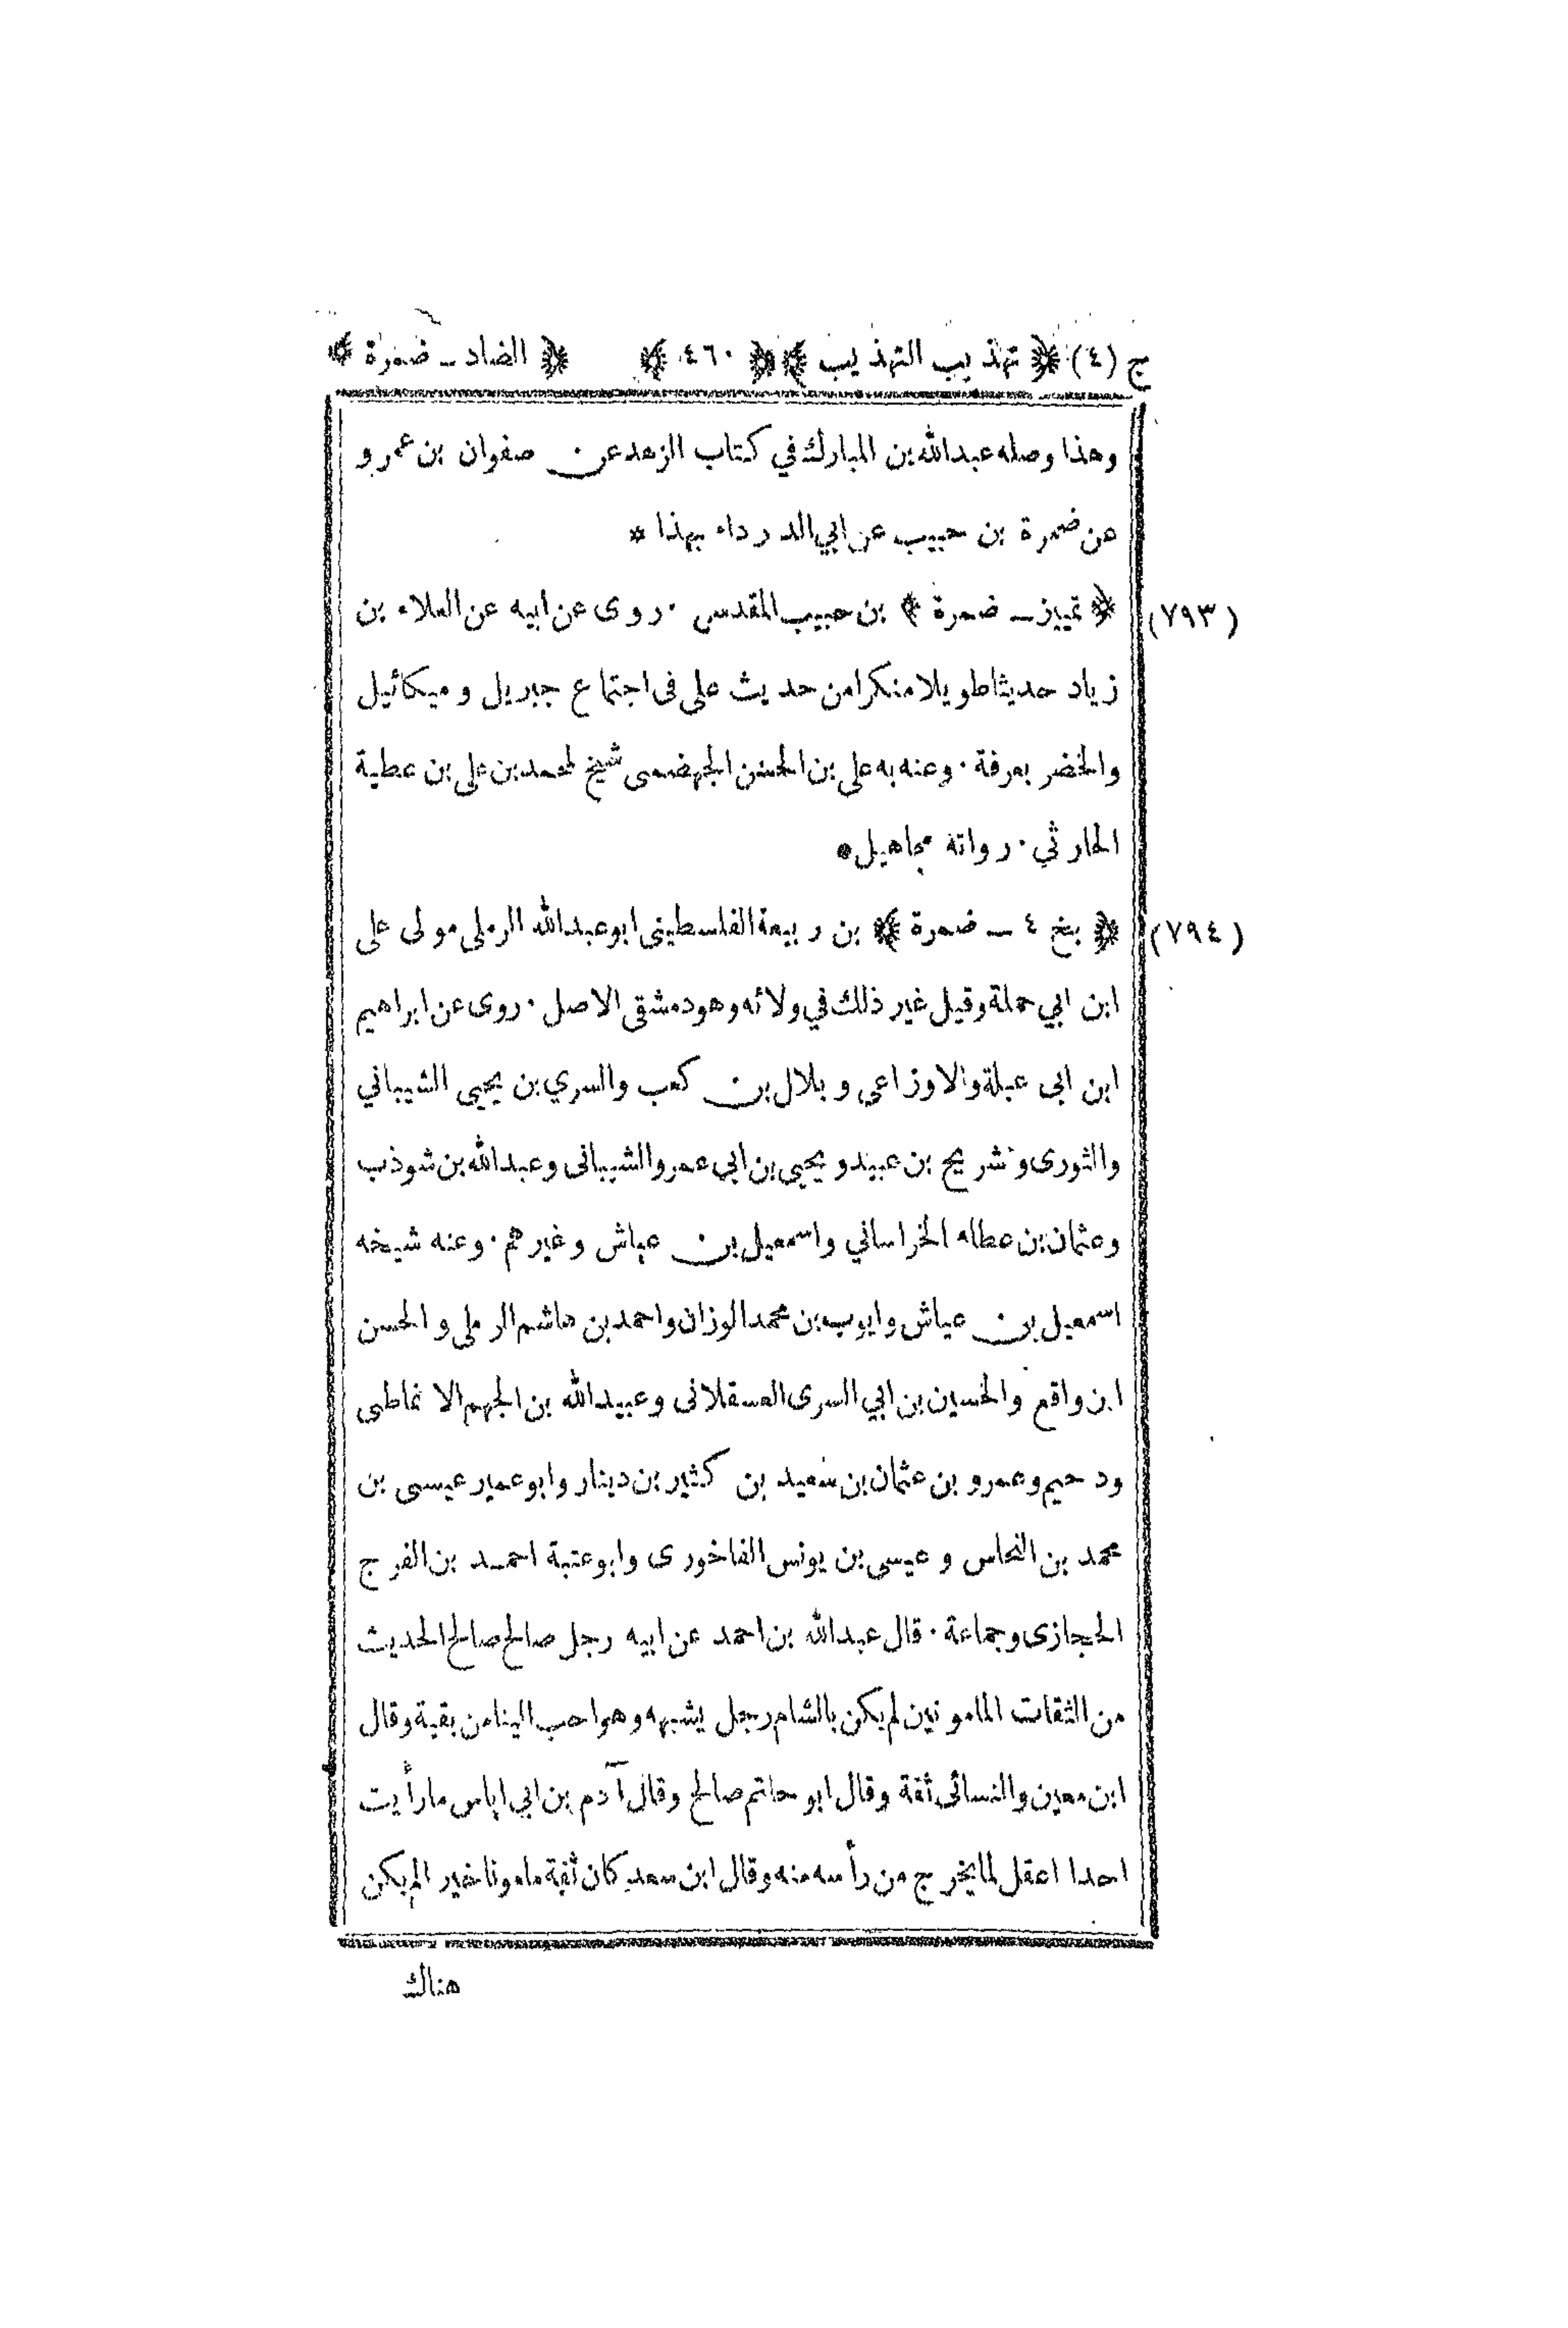 ج (٤) ﴿ تهذيب التهذيب ﴾ ﴿ ٤٦٠ ﴾ ﴿ الضاد ـ ضمرة ﴾
وهذا وصله عبدالله بن المبارك في كتاب الزهد عن صفوان بن عمرو
عن ضمرة بن حبيب عن ابي الدرداء بهذا *
(٧٩٣) ﴿ تمييز ـ ضمرة ﴾ بن حبيب المقدسي . روى عن ابيه عن العلاء بن
زياد حديثا طويلا منكرا من حديث على فى اجتماع جبريل وميكائيل
والخضر بعرفة . وعنه به على بن الحسن الجهضمى شيخ لمحمد بن على بن عطية
الحارثي . رواته مجاهيل *
(٧٩٤) ﴿ بخ ٤ ـ ضمرة ﴾ بن ربيعة الفلسطينى ابو عبدالله الرملى مولى على
ابن ابي حملة وقيل غير ذلك في ولائه وهو دمشقى الاصل . روى عن ابراهيم
ابن ابى عبلة والاوزاعى وبلال بن كعب والسري بن يحيى الشيباني
والثورى وشريح بن عبيد ويحيى بن ابي عمرو الشيبانى وعبدالله بن شوذب
وعثمان بن عطاء الخراساني واسمعيل بن عياش وغيرهم . وعنه شيخه
اسمعيل بن عياش وايوب بن محمد الوزان واحمد بن هاشم الرملى والحسن
ابن واقع والحسين بن ابي السرى العسقلانى وعبيدالله بن الجهم الانماطى
ودحيم وعمرو بن عثمان بن سعيد بن كثير بن دينار وابو عمير عيسى بن
محمد بن النحاس وعيسى بن يونس الفاخورى وابو عتبة احمد بن الفرج
الحجازى وجماعة . قال عبدالله بن احمد عن ابيه رجل صالح صالح الحديث
من الثقات المامونين لم يكن بالشام رجل يشبهه وهو احب الينا من بقية وقال
ابن معين والنسائى ثقة وقال ابو حاتم صالح وقال آدم بن ابي اياس ما رأيت
احدا اعقل لما يخرج من رأسه منه وقال ابن سعد كان ثقة مامونا خيرا لم يكن
هناك